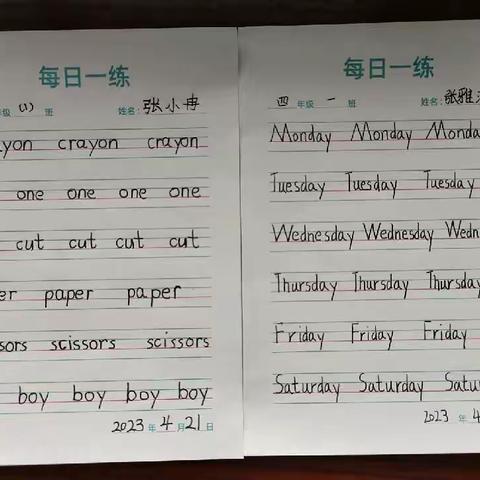 每日一练
年级 (1) 班 姓名: 张小冉
crayon crayon
one one one one
cut cut cut cut
paper paper
scissors scissors
boy boy boy boy
2023年4月21日
每日一练
四年级 一 班 姓名: 张雅
Monday Monday
Tuesday Tuesday Tuesday
Wednesday Wednesday
Thursday Thursday Thursday
Friday Friday Friday
Saturday Saturday
2023年4